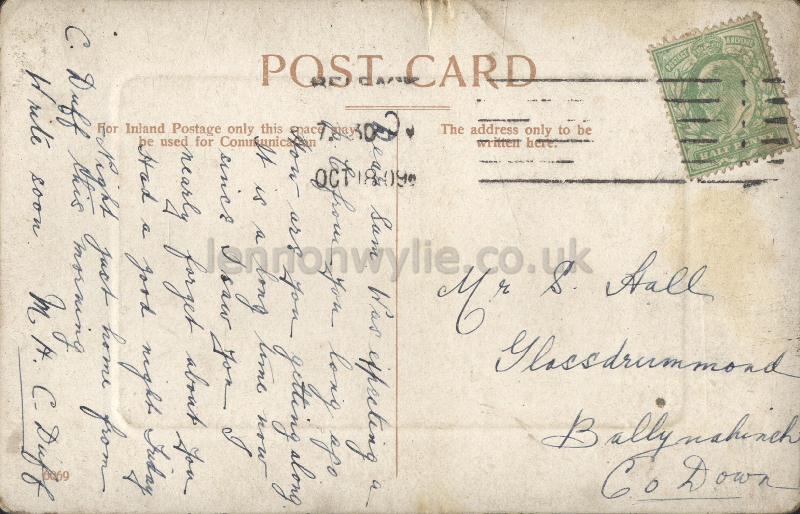 POST CARD
For Inland Postage only this space may
be used for Communication
The address only to be
written here.
BELFAST
7. 30 P
OCT 18 09
HALF PENNY
lennonwylie.co.uk
Dear Sam Was expecting a
from you long ago
How are you getting along
It is a long time now
since I saw you I
nearly forget about you
Had a good night Friday
Night just home from
C. Duff this morning
Write soon M. H. C. Duff
Mr S. Hall
Glassdrummond
Ballynahinch
Co Down
6069